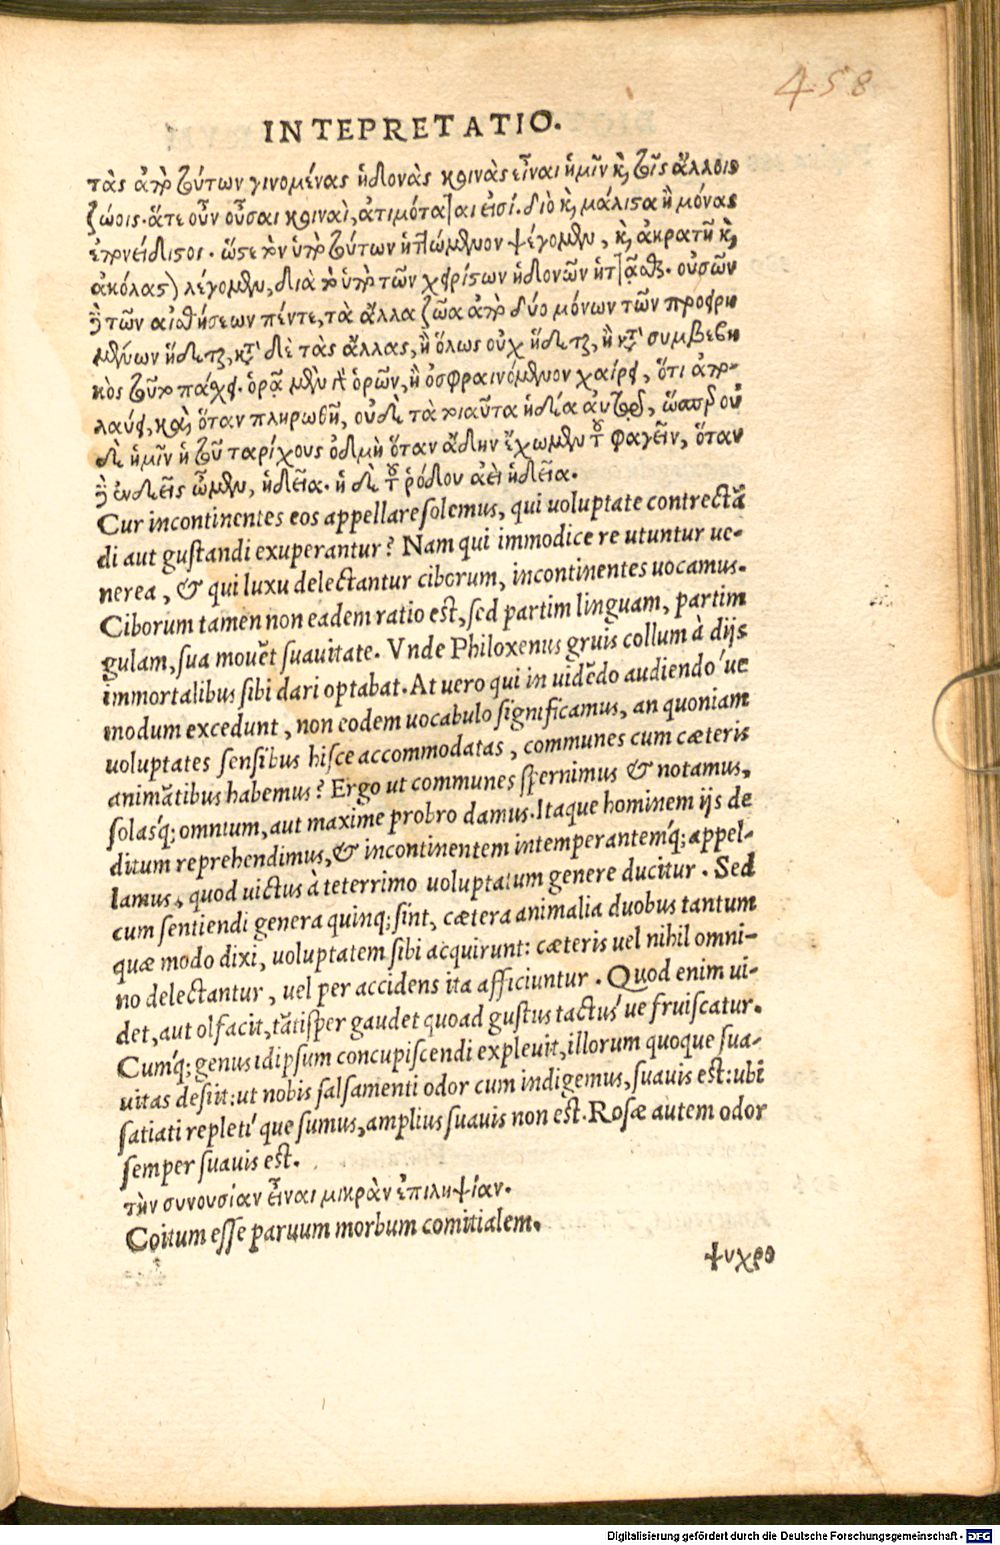 458
INTEPRETATIO.
τὰς ἀπὸ τούτων γινομένας ἡδονὰς κοινὰς εἶναι ἡμῖν κὶ τοῖς ἄλλοις
ζώοις. ἅτε οὖν οὖσαι κοιναὶ, ἀτιμόταται εἰσί. διὸ κὶ μάλιστα ἢ μόναι
ἐπονείδιστοι. ὥστε τὸν ὑπὸ τούτων ἡττώμενον ψέγομεν, κὶ ἀκρατῆ κὶ
ἀκόλαστον λέγομεν, διὰ τὸ ὑπὸ τῶν χειρίστων ἡδονῶν ἡττᾶσθαι. οὐσῶν
δὲ τῶν αἰσθήσεων πέντε, τὰ ἄλλα ζῶα ἀπὸ δύο μόνων τῶν προειρη
μένων ἥδεται, κατὰ δὲ τὰς ἄλλας, ἢ ὅλως οὐχ ἥδεται, ἢ κατὰ συμβεβη
κὸς τοῦτο πάχει. ὁρᾷ μὲν ὁρῶν, ἢ ὀσφραινόμενον χαίρει, ὅτι ἀπο-
λαύει, ὅταν πληρωθῆ, οὐδὲ τὰ τοιαῦτα ἡδέα αὐτῷ, ὥσπερ οὐ
δὲ ἡμῖν ἡ τοῦ ταρίχους ὀδμὴ ὅταν ἄδην ἔχωμεν τοῦ φαγεῖν, ὅταν
δὲ ἐνδεεῖς ὦμεν, ἡδεῖα. ἡ δὲ τοῦ ῥόδου ἀεὶ ἡδεῖα.
Cur incontinentes eos appellare solemus, qui uoluptate contrectā
di aut gustandi exuperantur? Nam qui immodice re utuntur ue-
nerea, & qui luxu delectantur ciborum, incontinentes uocamus.
Ciborum tamen non eadem ratio est, sed partim linguam, partim
gulam, sua mouēt suauitate. Vnde Philoxenus gruis collum à dijs
immortalibus sibi dari optabat. At uero qui in uidēdo audiendo'ue
modum excedunt, non eodem uocabulo significamus, an quoniam
uoluptates sensibus hisce accommodatas, communes cum cæteris
animātibus habemus? Ergo ut communes spernimus & notamus,
solas'q; omnium, aut maxime probro damus. Itaque hominem ijs de
ditum reprehendimus, & incontinentem intemperantem'q; appel-
lamus, quod uictus à teterrimo uoluptatum genere ducitur. Sed
cum sentiendi genera quinq; sint, cætera animalia duobus tantum
quæ modo dixi, uoluptatem sibi acquirunt: cæteris uel nihil omni-
no delectantur, uel per accidens ita afficiuntur. Quod enim ui-
det, aut olfacit, tātisper gaudet quoad gustus tactus'ue fruiscatur.
Cum'q; genus idipsum concupiscendi expleuit, illorum quoque sua-
uitas desiit: ut nobis salsamenti odor cum indigemus, suauis est: ubi
satiati repleti'que sumus, amplius suauis non est. Rosæ autem odor
semper suauis est.
τὴν συνουσίαν εἶναι μικρὰν ἐπιληψίαν.
Coitum esse paruum morbum comitialem.
ψυχρο
Digitalisierung gefördert durch die Deutsche Forschungsgemeinschaft - DFG